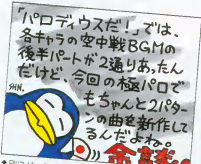 「パロディウスだ!」では、
各キャラの空中戦BGMの
後半パートが2通りあったん
だけど、今回の極パロで
もちゃんと2パター
ンの曲を新作して
るんだよね。
SHN.